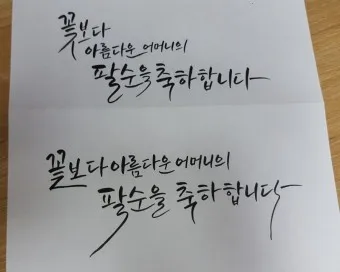 꽃보다
아름다운 어머니의
팔순을 축하합니다
꽃보다 아름다운 어머니의
팔순을 축하합니다